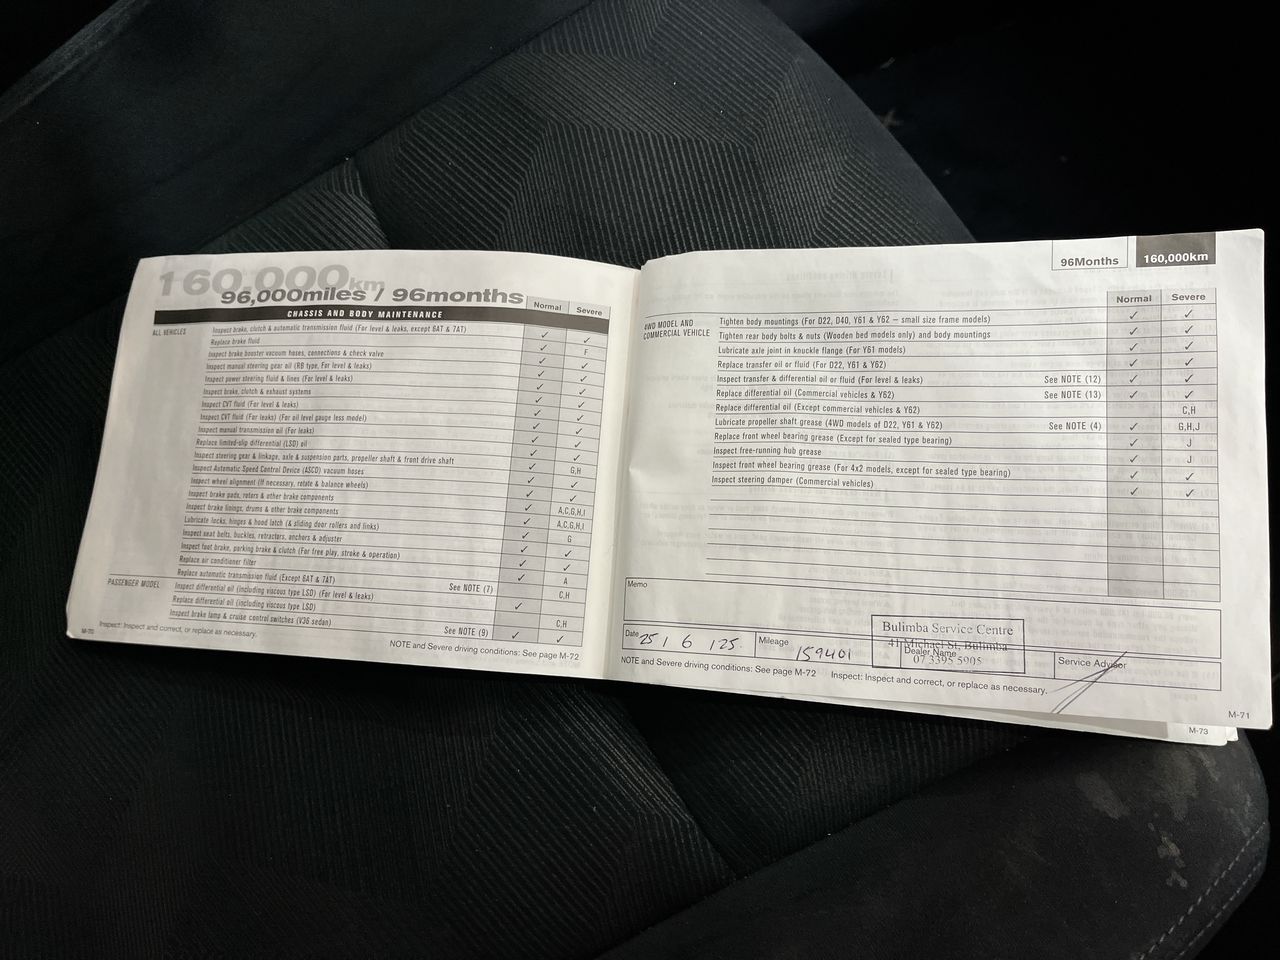 160,000km
96,000miles / 96months
Normal Severe
CHASSIS AND BODY MAINTENANCE
ALL VEHICLES
Inspect brake, clutch & automatic transmission fluid (For level & leaks, except 6AT & 7AT) ✓ ✓
Replace brake fluid ✓ F
Inspect brake booster vacuum hoses, connections & check valve ✓ ✓
Inspect manual steering gear oil (RB type, For level & leaks) ✓ ✓
Inspect power steering fluid & lines (For level & leaks) ✓ ✓
Inspect brake, clutch & exhaust systems ✓ ✓
Inspect CVT fluid (For level & leaks) ✓ ✓
Inspect CVT fluid (For leaks) (For oil level gauge less model) ✓ ✓
Inspect manual transmission oil (For leaks) ✓ ✓
Replace limited-slip differential (LSD) oil ✓ ✓
Inspect steering gear & linkage, axle & suspension parts, propeller shaft & front drive shaft ✓ G,H
Inspect Automatic Speed Control Device (ASCD) vacuum hoses ✓ ✓
Inspect wheel alignment (If necessary, rotate & balance wheels) ✓ ✓
Inspect brake pads, rotors & other brake components ✓ A,C,G,H,I
Inspect brake linings, drums & other brake components ✓ A,C,G,H,I
Lubricate locks, hinges & hood latch (& sliding door rollers and links) ✓ G
Inspect seat belts, buckles, retractors, anchors & adjuster ✓ ✓
Inspect foot brake, parking brake & clutch (For free play, stroke & operation) ✓ ✓
Replace air conditioner filter ✓ A
PASSENGER MODEL
Replace automatic transmission fluid (Except 6AT & 7AT) See NOTE (7) C,H
Inspect differential oil (including viscous type LSD) (For level & leaks) ✓
Replace differential oil (including viscous type LSD) C,H
Inspect brake lamp & cruise control switches (V36 sedan) See NOTE (9) ✓ ✓
M-70
Inspect: Inspect and correct, or replace as necessary.
NOTE and Severe driving conditions: See page M-72
96Months 160,000km
Normal Severe
4WD MODEL AND
COMMERCIAL VEHICLE
Tighten body mountings (For D22, D40, Y61 & Y62 – small size frame models) ✓ ✓
Tighten rear body bolts & nuts (Wooden bed models only) and body mountings ✓ ✓
Lubricate axle joint in knuckle flange (For Y61 models) ✓ ✓
Replace transfer oil or fluid (For D22, Y61 & Y62) ✓ ✓
Inspect transfer & differential oil or fluid (For level & leaks) See NOTE (12) ✓ ✓
Replace differential oil (Commercial vehicles & Y62) See NOTE (13) ✓ ✓
Replace differential oil (Except commercial vehicles & Y62) C,H
Lubricate propeller shaft grease (4WD models of D22, Y61 & Y62) See NOTE (4) ✓ G,H,J
Replace front wheel bearing grease (Except for sealed type bearing) ✓ J
Inspect free-running hub grease ✓ J
Inspect front wheel bearing grease (For 4x2 models, except for sealed type bearing) ✓ ✓
Inspect steering damper (Commercial vehicles) ✓ ✓
Memo
Bulimba Service Centre
41 Michael St, Bulimba
07 3395 5905
Date 25 / 6 / 25 Mileage 159401 Dealer Name Service Advisor
NOTE and Severe driving conditions: See page M-72 Inspect: Inspect and correct, or replace as necessary.
M-71
M-73